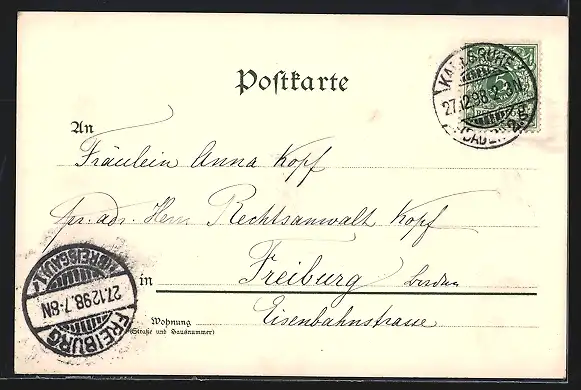 Postkarte
KARLSRUHE
27.12.98.2-3N.
(BADEN) 2.
An
Fräulein Anna Kopf
pr. adr. Herr Rechtsanwalt Kopf
in Freiburg
Wohnung Eisenbahnstrasse
(Straße und Hausnummer)
FREIBURG
27.12.98.7-8N
(BREISGAU) 1.